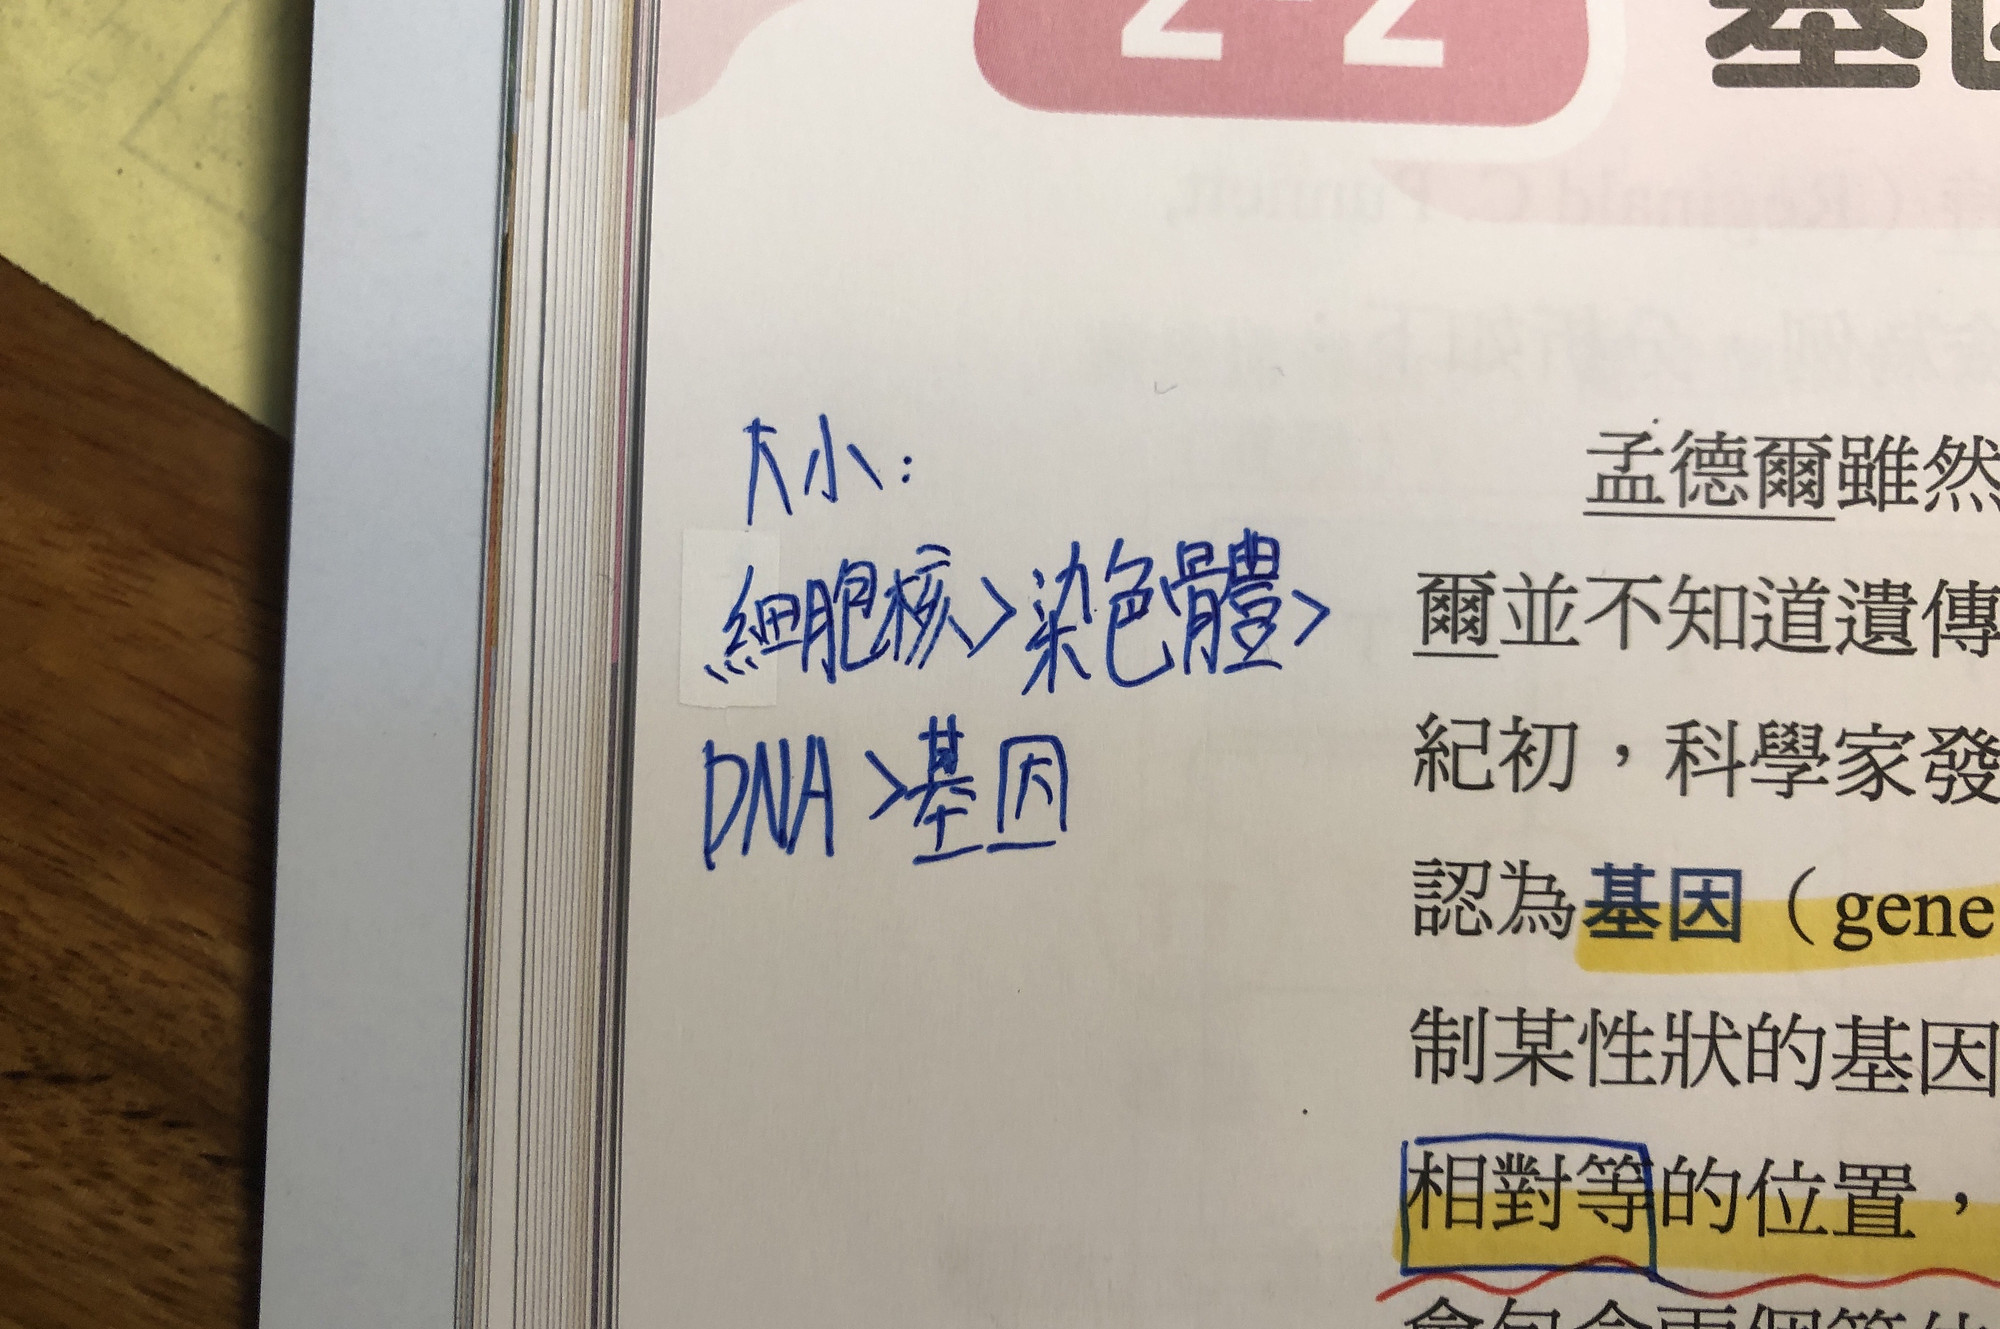 2-2 基因
大小：
細胞核>染色體>
DNA>基因
孟德爾雖然
爾並不知道遺傳
紀初，科學家發
認為基因（gene
制某性狀的基因
相對等的位置，